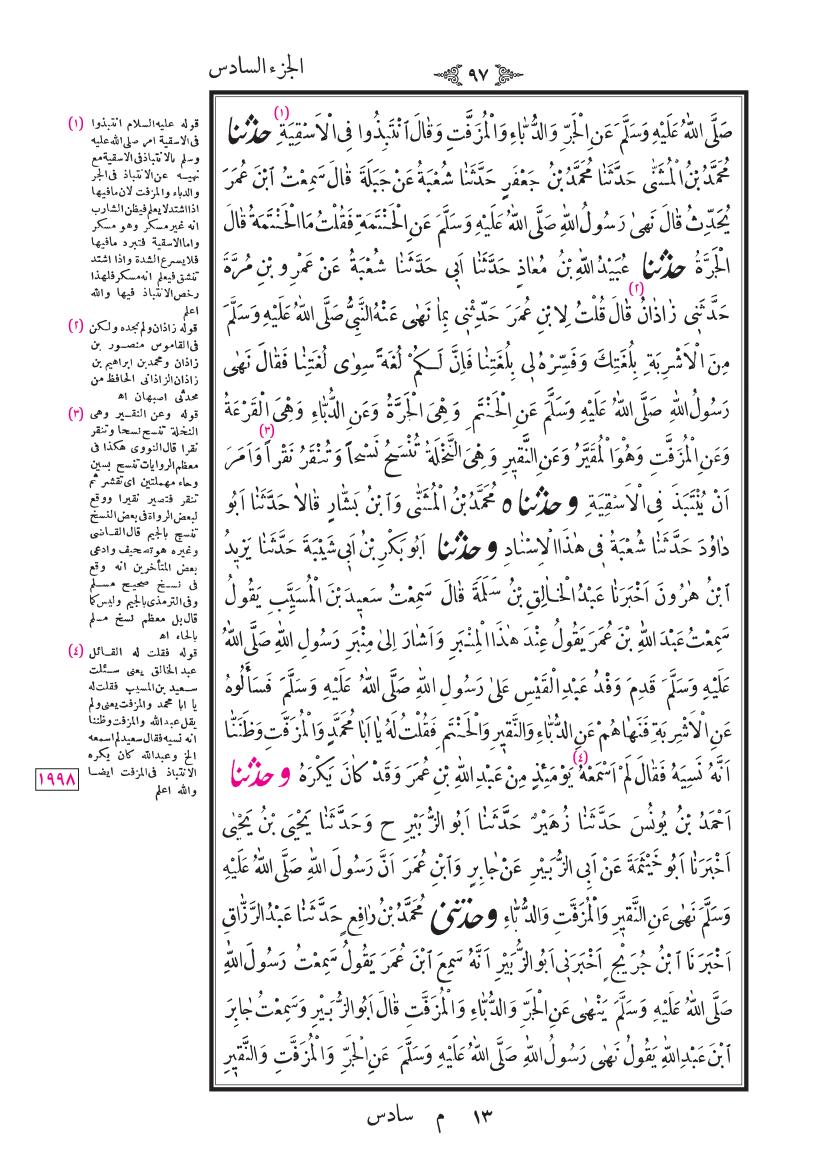 ٩٧
الجزء السادس
صَلَّى اللهُ عَلَيْهِ وَسَلَّمَ عَنِ الْجَرِّ وَالدُّبَّاءِ وَالْمُزَفَّتِ وَقَالَ اَنْتَبِذُوا فِى الْاَسْقِيَةِ (١) حَدَّثَنَا
مُحَمَّدُ بْنُ الْمُثَنَّى حَدَّثَنَا مُحَمَّدُ بْنُ جَعْفَرٍ حَدَّثَنَا شُعْبَةُ عَنْ جَبَلَةَ قَالَ سَمِعْتُ ابْنَ عُمَرَ
يُحَدِّثُ قَالَ نَهٰى رَسُولُ اللهِ صَلَّى اللهُ عَلَيْهِ وَسَلَّمَ عَنِ الْحَنْتَمَةِ فَقُلْتُ مَا الْحَنْتَمَةُ قَالَ
الْجَرَّةُ حَدَّثَنَا عُبَيْدُ اللهِ بْنُ مُعَاذٍ حَدَّثَنَا اَبِى حَدَّثَنَا شُعْبَةُ عَنْ عَمْرِو بْنِ مُرَّةَ
حَدَّثَنِى زَاذَانُ (٢) قَالَ قُلْتُ لِابْنِ عُمَرَ حَدِّثْنِى بِمَا نَهٰى عَنْهُ النَّبِىُّ صَلَّى اللهُ عَلَيْهِ وَسَلَّمَ
مِنَ الْاَشْرِبَةِ بِلُغَتِكَ وَفَسِّرْهُ لِى بِلُغَتِنَا فَاِنَّ لَكُمْ لُغَةً سِوٰى لُغَتِنَا فَقَالَ نَهٰى
رَسُولُ اللهِ صَلَّى اللهُ عَلَيْهِ وَسَلَّمَ عَنِ الْحَنْتَمِ وَهِىَ الْجَرَّةُ وَعَنِ الدُّبَّاءِ وَهِىَ الْقَرْعَةُ
وَعَنِ الْمُزَفَّتِ وَهُوَ الْمُقَيَّرُ وَعَنِ النَّقِيرِ وَهِىَ النَّخْلَةُ تُنْسَحُ نَسْحاً وَتُنْقَرُ نَقْراً (٣) وَاَمَرَ
اَنْ يُنْتَبَذَ فِى الْاَسْقِيَةِ وَحَدَّثَنَاه مُحَمَّدُ بْنُ الْمُثَنَّى وَابْنُ بَشَّارٍ قَالَا حَدَّثَنَا اَبُو
دَاوُدَ حَدَّثَنَا شُعْبَةُ فِى هٰذَا الْاِسْنَادِ وَحَدَّثَنَا اَبُو بَكْرِ بْنُ اَبِى شَيْبَةَ حَدَّثَنَا يَزِيدُ
ابْنُ هٰرُونَ اَخْبَرَنَا عَبْدُ الْخَالِقِ بْنُ سَلَمَةَ قَالَ سَمِعْتُ سَعِيدَ بْنَ الْمُسَيَّبِ يَقُولُ
سَمِعْتُ عَبْدَ اللهِ بْنَ عُمَرَ يَقُولُ عِنْدَ هٰذَا الْمِنْبَرِ وَاَشَارَ اِلٰى مِنْبَرِ رَسُولِ اللهِ صَلَّى اللهُ
عَلَيْهِ وَسَلَّمَ قَدِمَ وَفْدُ عَبْدِ الْقَيْسِ عَلٰى رَسُولِ اللهِ صَلَّى اللهُ عَلَيْهِ وَسَلَّمَ فَسَأَلُوهُ
عَنِ الْاَشْرِبَةِ فَنَهَاهُمْ عَنِ الدُّبَّاءِ وَالنَّقِيرِ وَالْحَنْتَمِ فَقُلْتُ لَهُ يَا اَبَا مُحَمَّدٍ وَالْمُزَفَّتِ وَظَنَنَّا
اَنَّهُ نَسِيَهُ فَقَالَ لَمْ اَسْمَعْهُ (٤) يَوْمَئِذٍ مِنْ عَبْدِ اللهِ بْنِ عُمَرَ وَقَدْ كَانَ يَكْرَهُ وَحَدَّثَنَا
اَحْمَدُ بْنُ يُونُسَ حَدَّثَنَا زُهَيْرٌ حَدَّثَنَا اَبُو الزُّبَيْرِ ح وَحَدَّثَنَا يَحْيَى بْنُ يَحْيٰى
اَخْبَرَنَا اَبُو خَيْثَمَةَ عَنْ اَبِى الزُّبَيْرِ عَنْ جَابِرٍ وَابْنِ عُمَرَ اَنَّ رَسُولَ اللهِ صَلَّى اللهُ عَلَيْهِ
وَسَلَّمَ نَهٰى عَنِ النَّقِيرِ وَالْمُزَفَّتِ وَالدُّبَّاءِ وَحَدَّثَنِى مُحَمَّدُ بْنُ رَافِعٍ حَدَّثَنَا عَبْدُ الرَّزَّاقِ
اَخْبَرَنَا ابْنُ جُرَيْجٍ اَخْبَرَنِى اَبُو الزُّبَيْرِ اَنَّهُ سَمِعَ ابْنَ عُمَرَ يَقُولُ سَمِعْتُ رَسُولَ اللهِ
صَلَّى اللهُ عَلَيْهِ وَسَلَّمَ يَنْهٰى عَنِ الْجَرِّ وَالدُّبَّاءِ وَالْمُزَفَّتِ قَالَ اَبُو الزُّبَيْرِ وَسَمِعْتُ جَابِرَ
ابْنَ عَبْدِ اللهِ يَقُولُ نَهٰى رَسُولُ اللهِ صَلَّى اللهُ عَلَيْهِ وَسَلَّمَ عَنِ الْجَرِّ وَالْمُزَفَّتِ وَالنَّقِيرِ
(١) قوله عليه السلام انتبذوا
فى الاسقية امر صلى الله عليه
وسلم بالانتباذ فى الاسقية مع
نهيه عن الانتباذ فى الجر
والدباء والمزفت لان ما فيها
اذا اشتد لا يعلم فيظن الشارب
انه غير مسكر وهو مسكر
واما الاسقية فتبرد ما فيها
فلا يسرع الشدة واذا اشتد
تنشق فيعلم انه مسكر فلهذا
رخص الانتباذ فيها والله
اعلم
(٢) قوله زاذان ولم نجده ولكن
فى القاموس منصور بن
زاذان ومحمد بن ابراهيم بن
زاذان الزاذانى الحافظ من
محدثى اصبهان اه
(٣) قوله وعن النقير وهى
النخلة تنسح نسحا وتنقر
نقرا قال النووى هكذا فى
معظم الروايات تنسح بسين
وحاء مهملتين اى تقشر ثم
تنقر فتصير نقيرا ووقع
لبعض الرواة فى بعض النسخ
تنسج بالجيم قال القاضى
وغيره هو تصحيف وادعى
بعض المتأخرين انه وقع
فى نسخ صحيح مسلم
وفى الترمذى بالجيم وليس كما
قال بل معظم نسخ مسلم
بالحاء اه
(٤) قوله فقلت له القائل
عبد الخالق يعنى سئلت
سعيد بن المسيب فقلت له
يا ابا محمد والمزفت يعنى ولم
يقل عبد الله والمزفت وظننا
انه نسيه فقال سعيد لم اسمعه
الخ وعبد الله كان يكره
الانتباذ فى المزفت ايضا
والله اعلم
١٩٩٨
١٣ م سادس